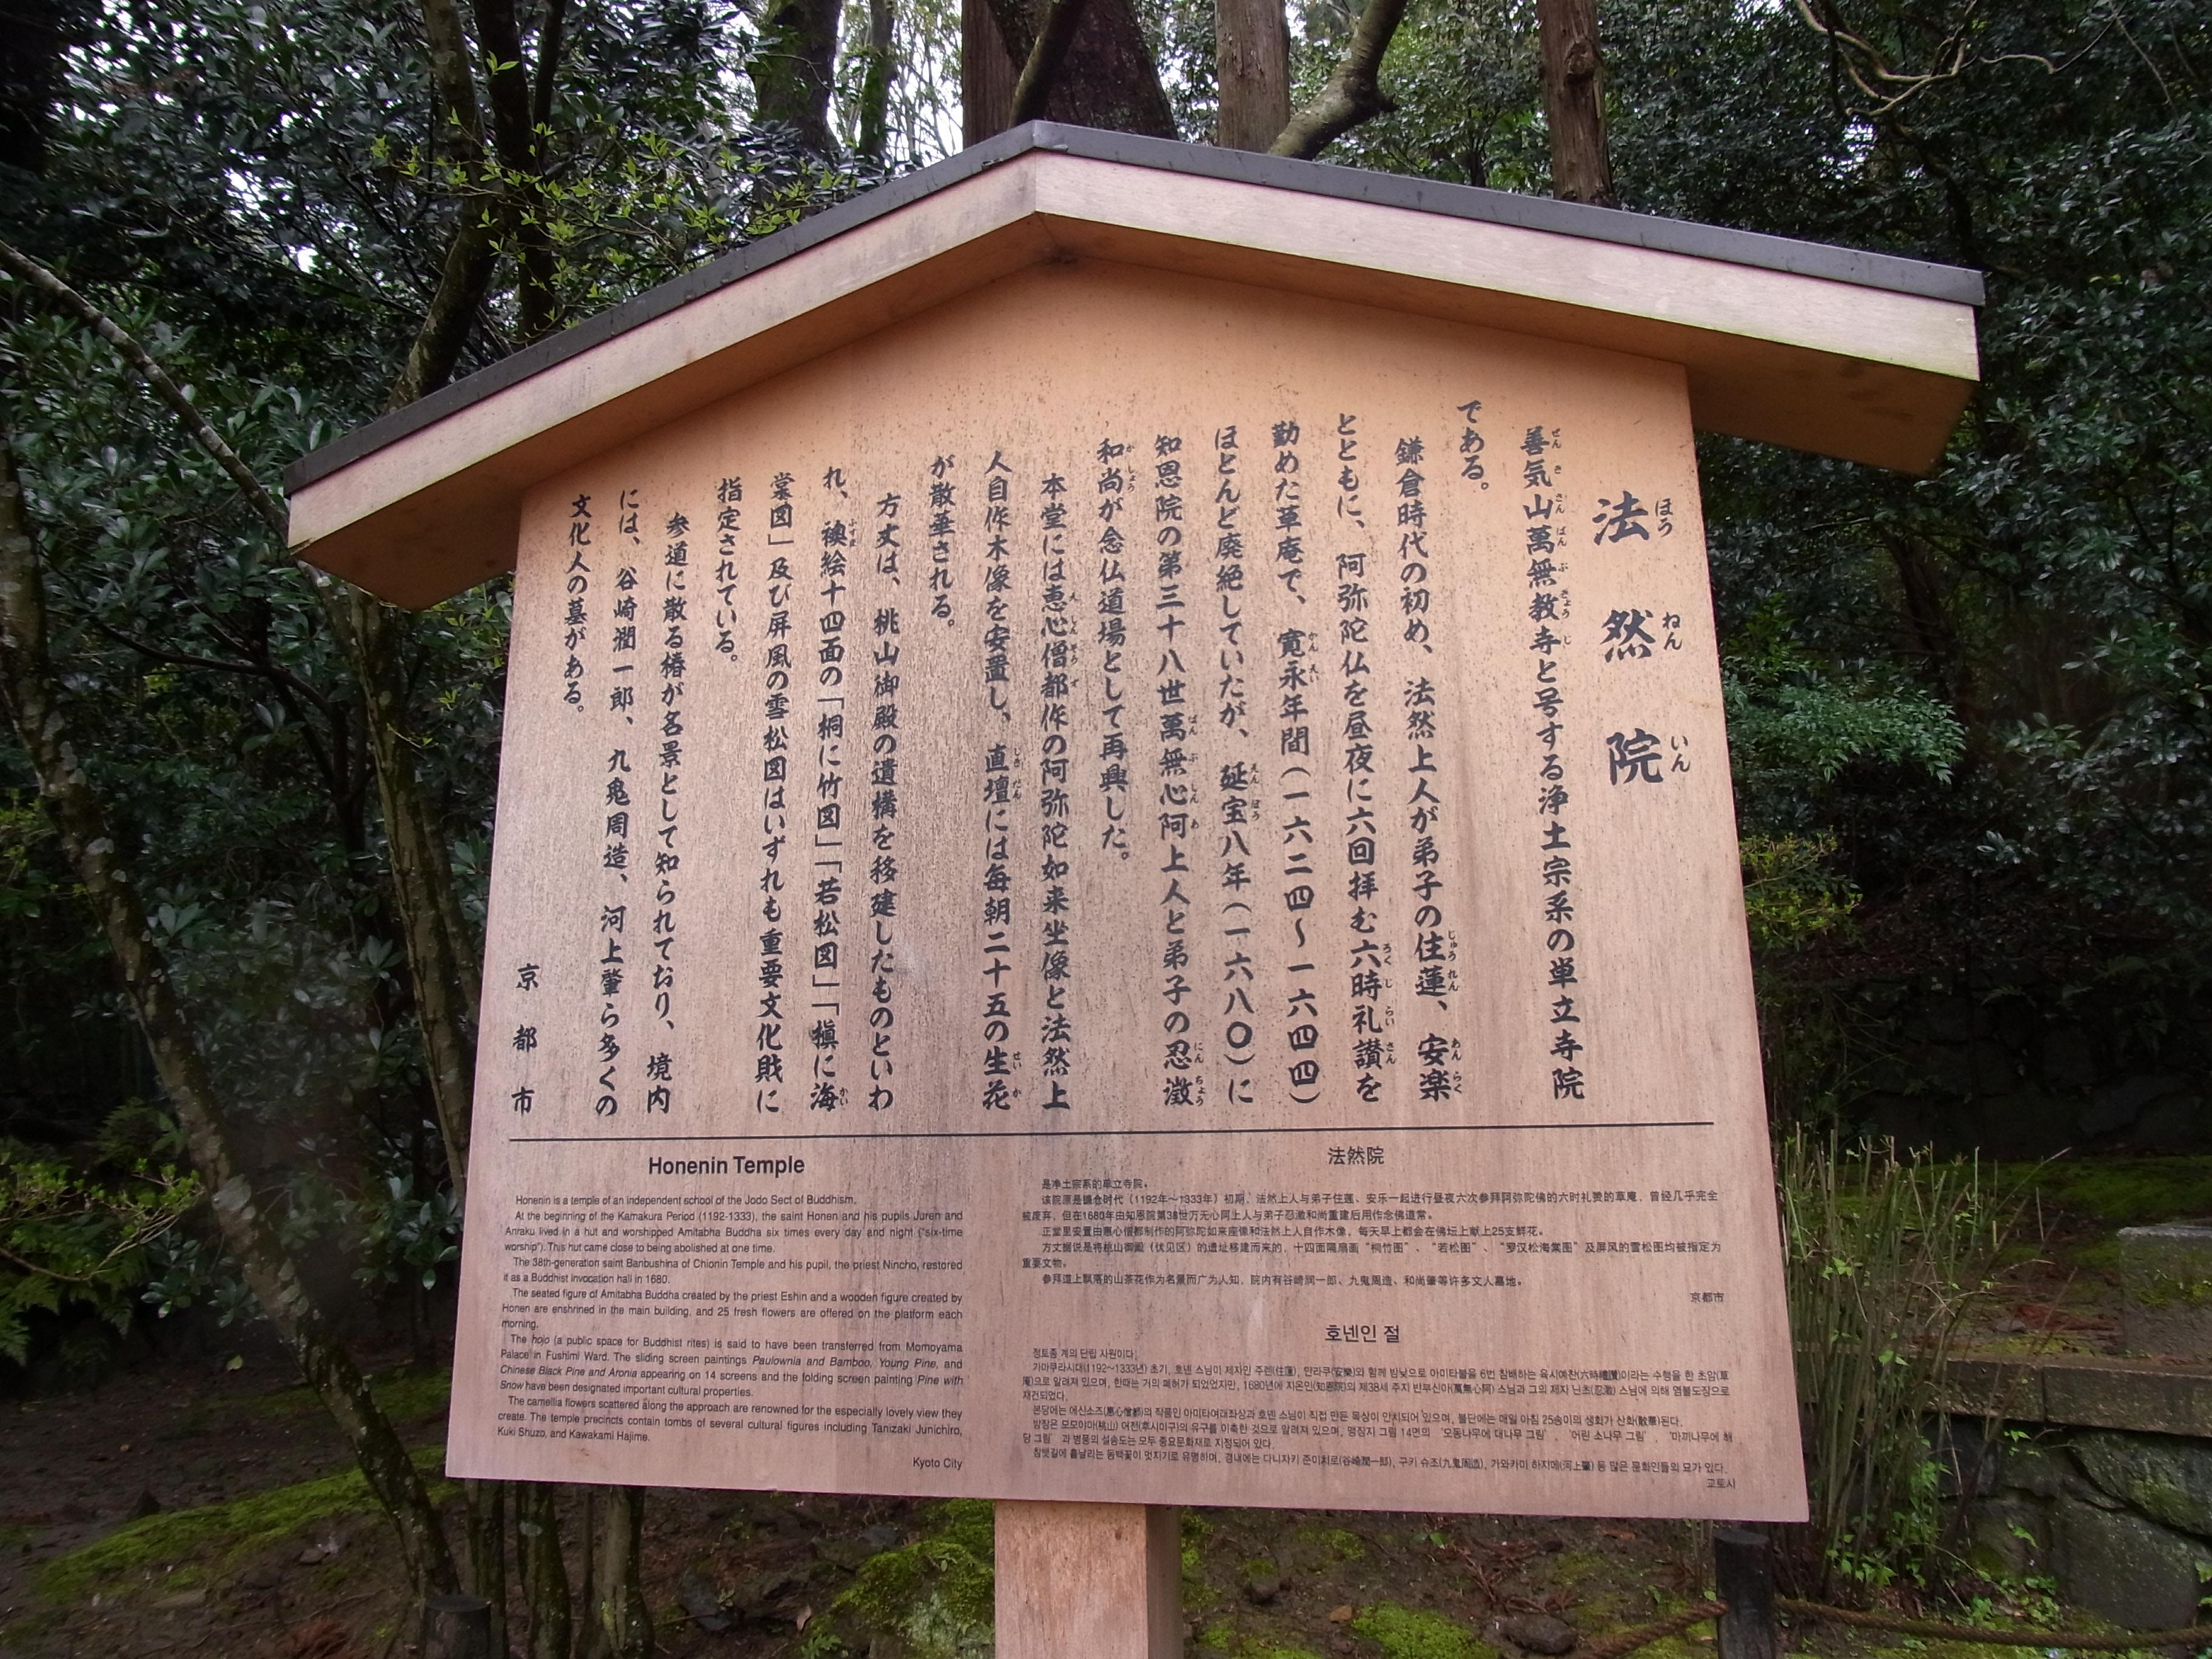 法然院
善気山萬無教寺と号する浄土宗系の単立寺院
である。
鎌倉時代の初め、法然上人が弟子の住蓮、安楽
とともに、阿弥陀仏を昼夜に六回拝む六時礼讃を
勤めた草庵で、寛永年間(一六二四〜一六四四)
ほとんど廃絶していたが、延宝八年(一六八〇)に
知恩院の第三十八世萬無心阿上人と弟子の忍澂
和尚が念仏道場として再興した。
本堂には恵心僧都作の阿弥陀如来坐像と法然上
人自作木像を安置し、直壇には毎朝二十五の生花
が散華される。
方丈は、桃山御殿の遺構を移建したものといわ
れ、襖絵十四面の「桐に竹図」「若松図」「槇に海
棠図」及び屏風の雪松図はいずれも重要文化財に
指定されている。
参道に散る椿が名景として知られており、境内
には、谷崎潤一郎、九鬼周造、河上肇ら多くの
文化人の墓がある。
京都市
Honenin Temple
Honenin is a temple of an independent school of the Jodo Sect of Buddhism.
At the beginning of the Kamakura Period (1192-1333), the saint Honen and his pupils Juren and
Anraku lived in a hut and worshipped Amitabha Buddha six times every day and night ("six-time
worship"). This hut came close to being abolished at one time.
The 38th-generation saint Banbushina of Chionin Temple and his pupil, the priest Nincho, restored
it as a Buddhist invocation hall in 1680.
The seated figure of Amitabha Buddha created by the priest Eshin and a wooden figure created by
Honen are enshrined in the main building, and 25 fresh flowers are offered on the platform each
morning.
The hojo (a public space for Buddhist rites) is said to have been transferred from Momoyama
Palace in Fushimi Ward. The sliding screen paintings Paulownia and Bamboo, Young Pine, and
Chinese Black Pine and Aronia appearing on 14 screens and the folding screen painting Pine with
Snow have been designated important cultural properties.
The camellia flowers scattered along the approach are renowned for the especially lovely view they
create. The temple precincts contain tombs of several cultural figures including Tanizaki Junichiro,
Kuki Shuzo, and Kawakami Hajime.
Kyoto City
法然院
是净土宗系的单立寺院。
该院原是镰仓时代(1192年～1333年)初期、法然上人与弟子住莲、安乐一起进行昼夜六次参拜阿弥陀佛的六时礼赞的草庵，曾经几乎完全
被废弃，但在1680年由知恩院第38世万无心阿上人与弟子忍澂和尚重建后用作念佛道常。
正堂里安置由惠心僧都制作的阿弥陀如来座像和法然上人自作木像，每天早上都会在佛坛上献上25支鲜花。
方丈据说是将桃山御殿(伏见区)的遗址移建而来的，十四面隔扇画“桐竹图”、“若松图”、“罗汉松海棠图”及屏风的雪松图均被指定为
重要文物。
参拜道上飘落的山茶花作为名景而广为人知，院内有谷崎润一郎、九鬼周造、和尚肇等许多文人墓地。
京都市
호넨인 절
정토종 계의 단립 사원이다.
가마쿠라시대(1192～1333년) 초기, 호넨 스님이 제자인 주렌(住蓮), 안라쿠(安樂)와 함께 밤낮으로 아미타불을 6번 참배하는 육시예찬(六時禮讚)이라는 수행을 한 초암(草
庵)으로 알려져 있으며, 한때는 거의 폐허가 되었었지만, 1680년에 지온인(知恩院)의 제38세 주지 반부신아(萬無心阿) 스님과 그의 제자 닌초(忍澂) 스님에 의해 염불도장으로
재건되었다.
본당에는 에신소즈(惠心僧都)의 작품인 아미타여래좌상과 호넨 스님이 직접 만든 목상이 안치되어 있으며, 불단에는 매일 아침 25송이의 생화가 산화(散華)된다.
방장은 모모야마(桃山) 어전(후시미구)의 유구를 이축한 것으로 알려져 있으며, 맹장지 그림 14면의 '오동나무에 대나무 그림', '어린 소나무 그림', '마끼나무에 해
당 그림' 과 병풍의 설송도는 모두 중요문화재로 지정되어 있다.
참뱃길에 흩날리는 동백꽃이 멋지기로 유명하며, 경내에는 다니자키 준이치로(谷崎潤一郎), 구키 슈조(九鬼周造), 가와카미 하지메(河上肇) 등 많은 문화인들의 묘가 있다.
교토시